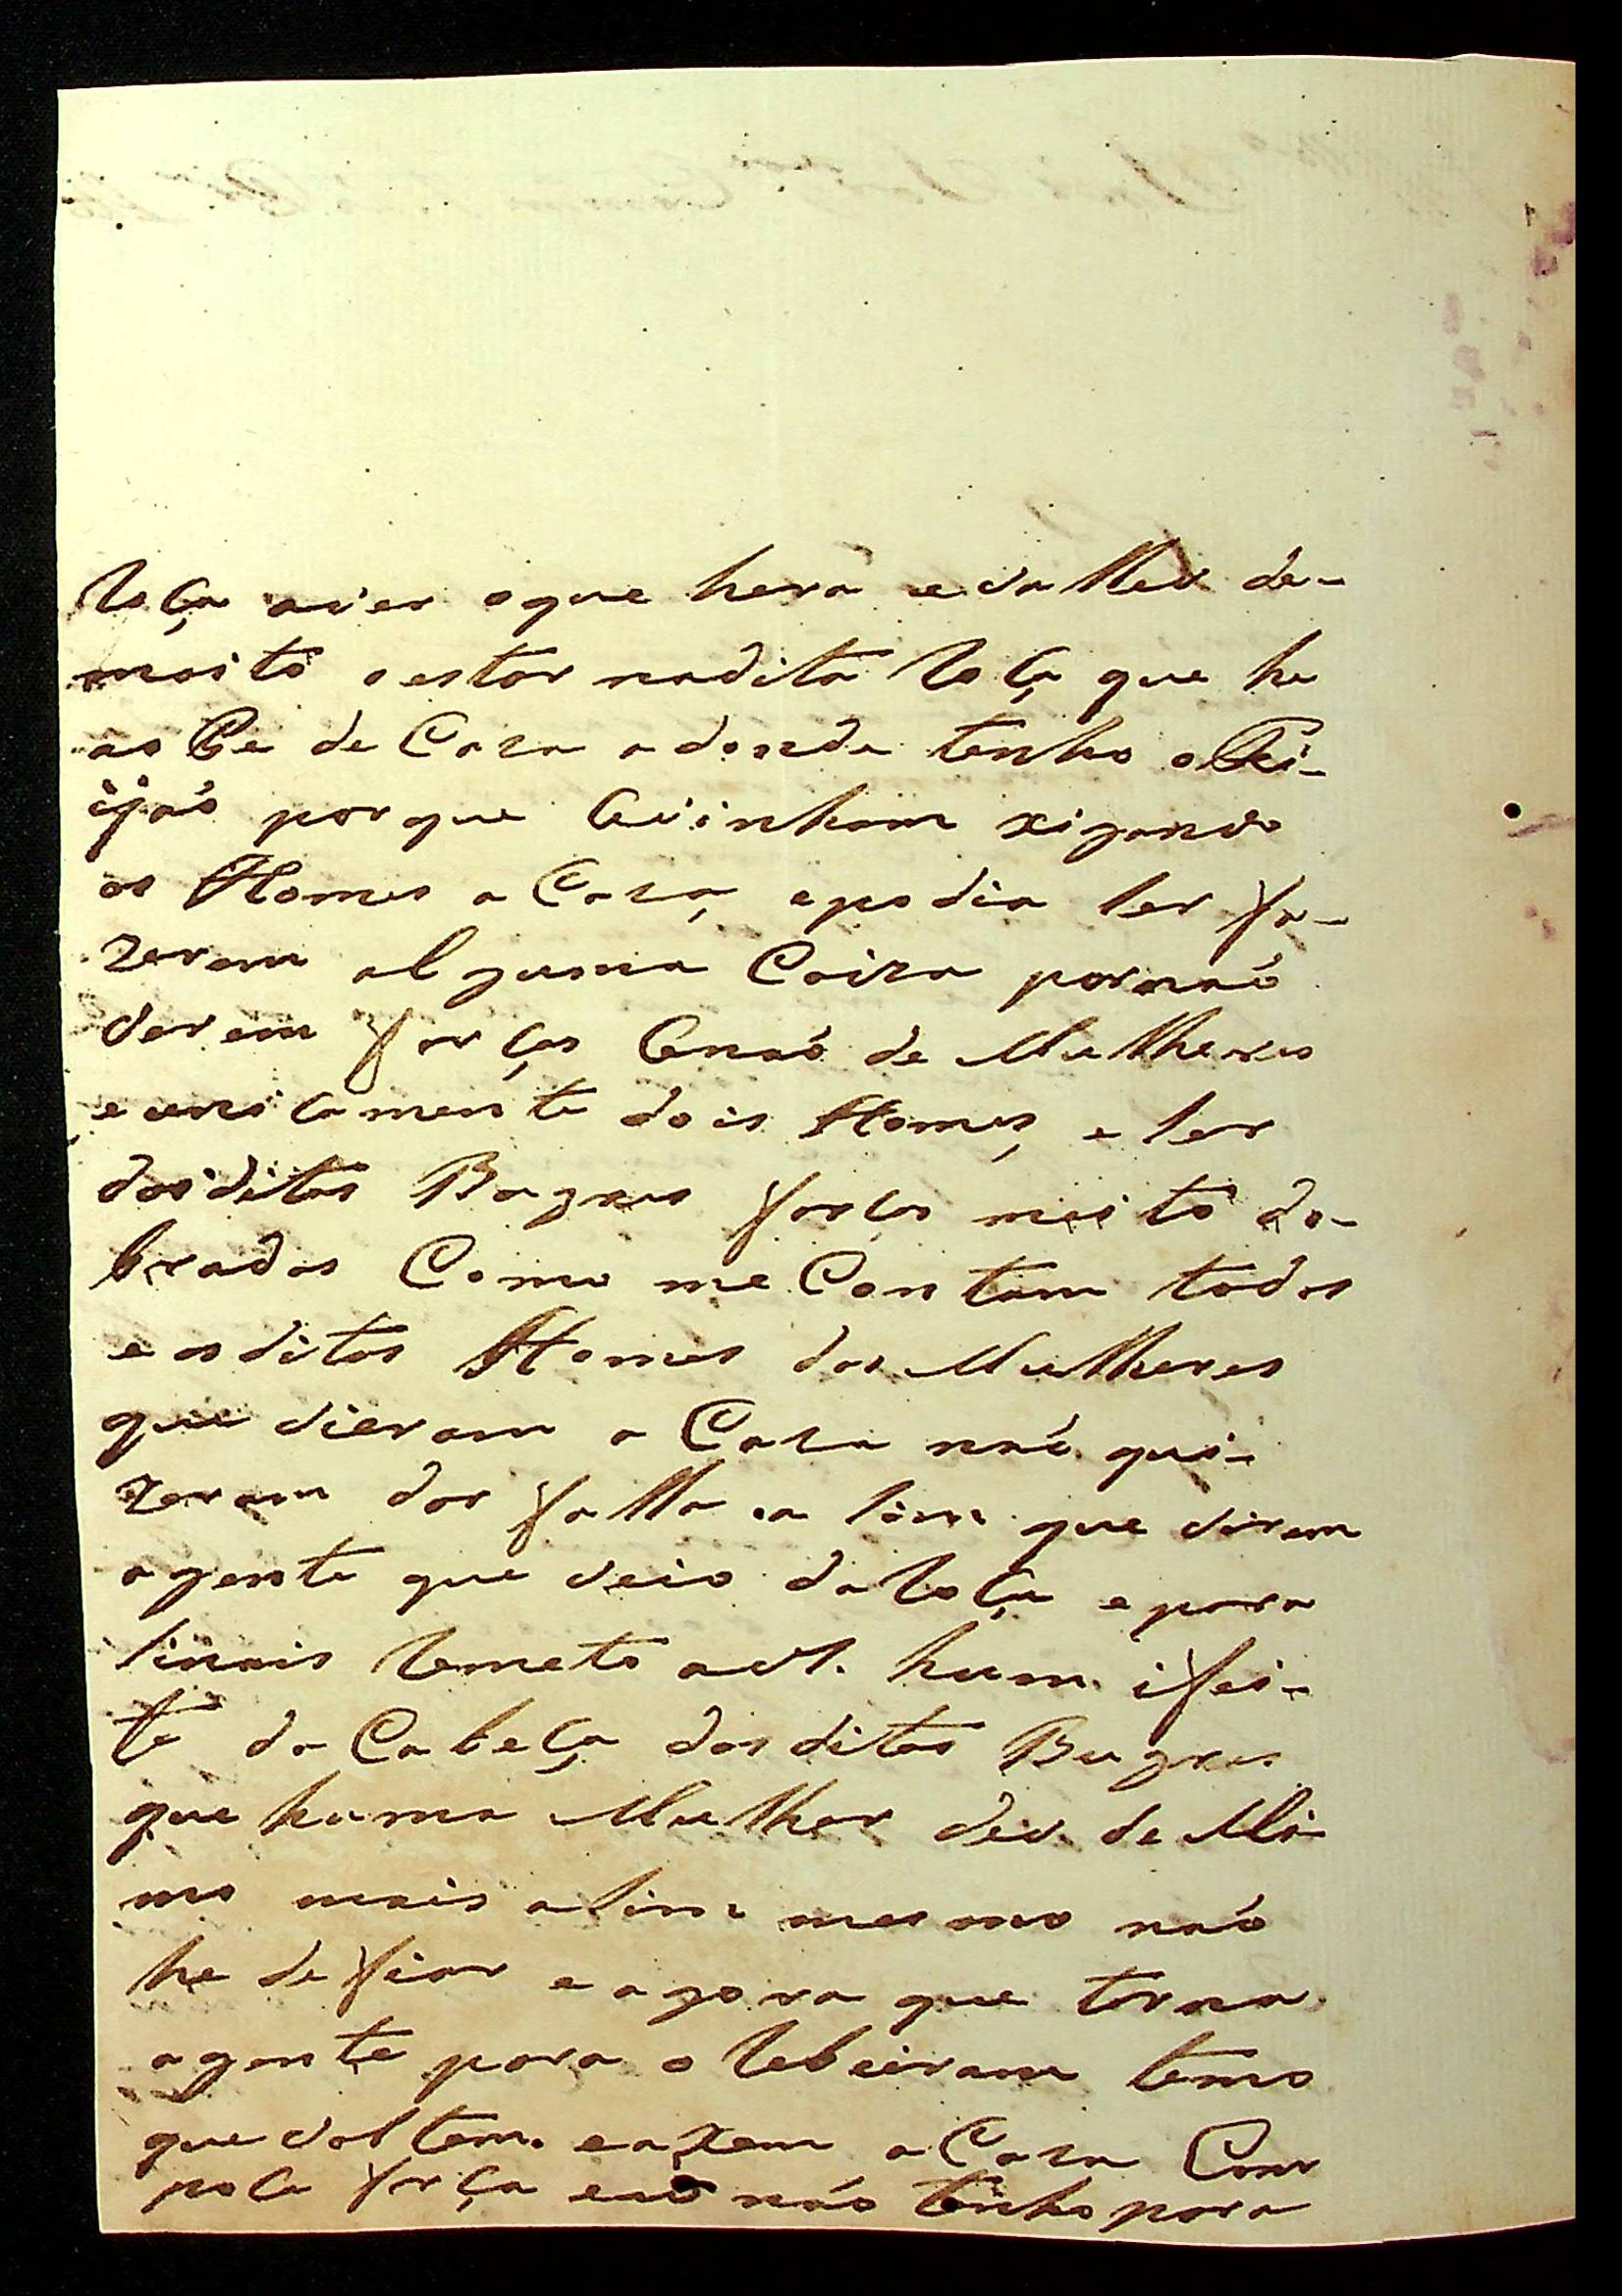 Roça aver oque hera evalleu de-
muito o estar nadita Roça que he
ao Pé de Caza adonde tenho o Fei-
ijaó porque Sevinham xigando
os Homes a Caza, epodia ser fa-
zerem alguma Coiza pornaó
verem forças Senaó de Mulheres
eunicamente dois Homes, e ser
dosditos Bugres forças muito do-
bradas Como me Contam todos
e os ditos Homes das Mulheres
que vieram a Caza naó qui-
zeram dar falla a sim que virem
agente que veio daRoça epara
sinais Remeto a VS. hum ifei-
te da Cabeça dos ditos Bugres
que huma Mulher deu de Mi-
mo mais asim mesmo naó
he de fiar e agora que torna
agente para o Rebeiram temo
que voltem. eaxem a Caza Com
poca força eeu náo tenho para